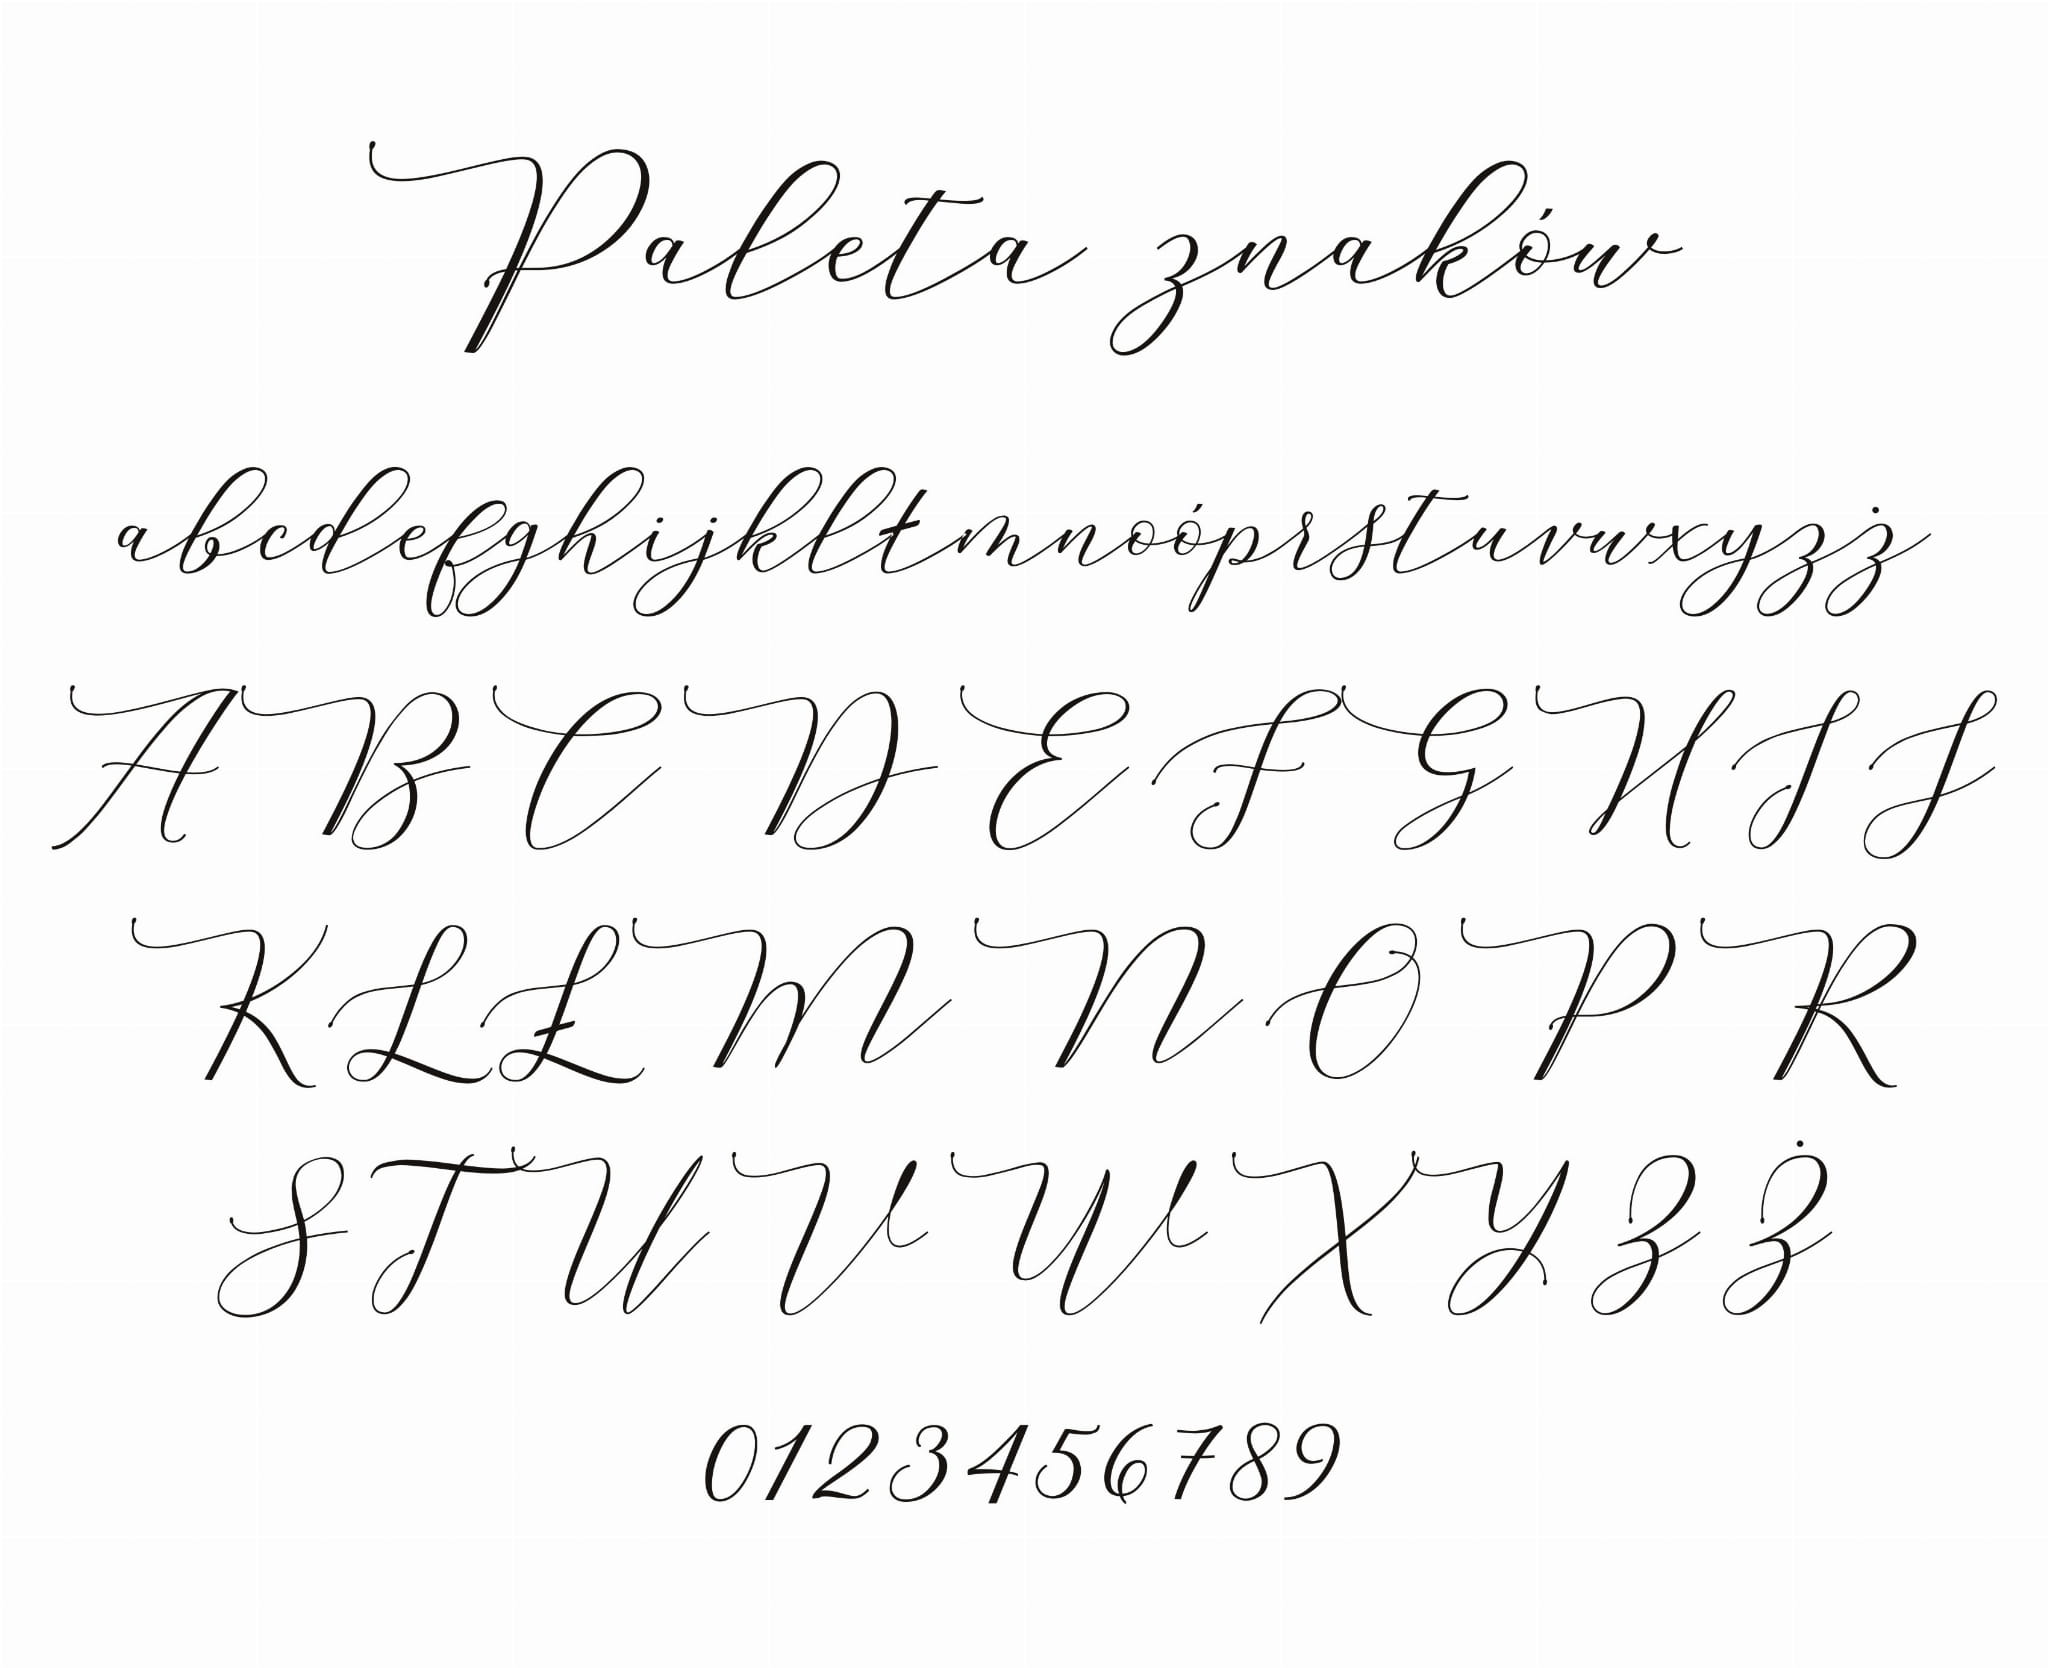 Paleta znaków
abcdefghijklłmnoóprstuvwxyzż
ABCDEFGHIJ
KLŁMNOPR
STUVWXYZŻ
0123456789